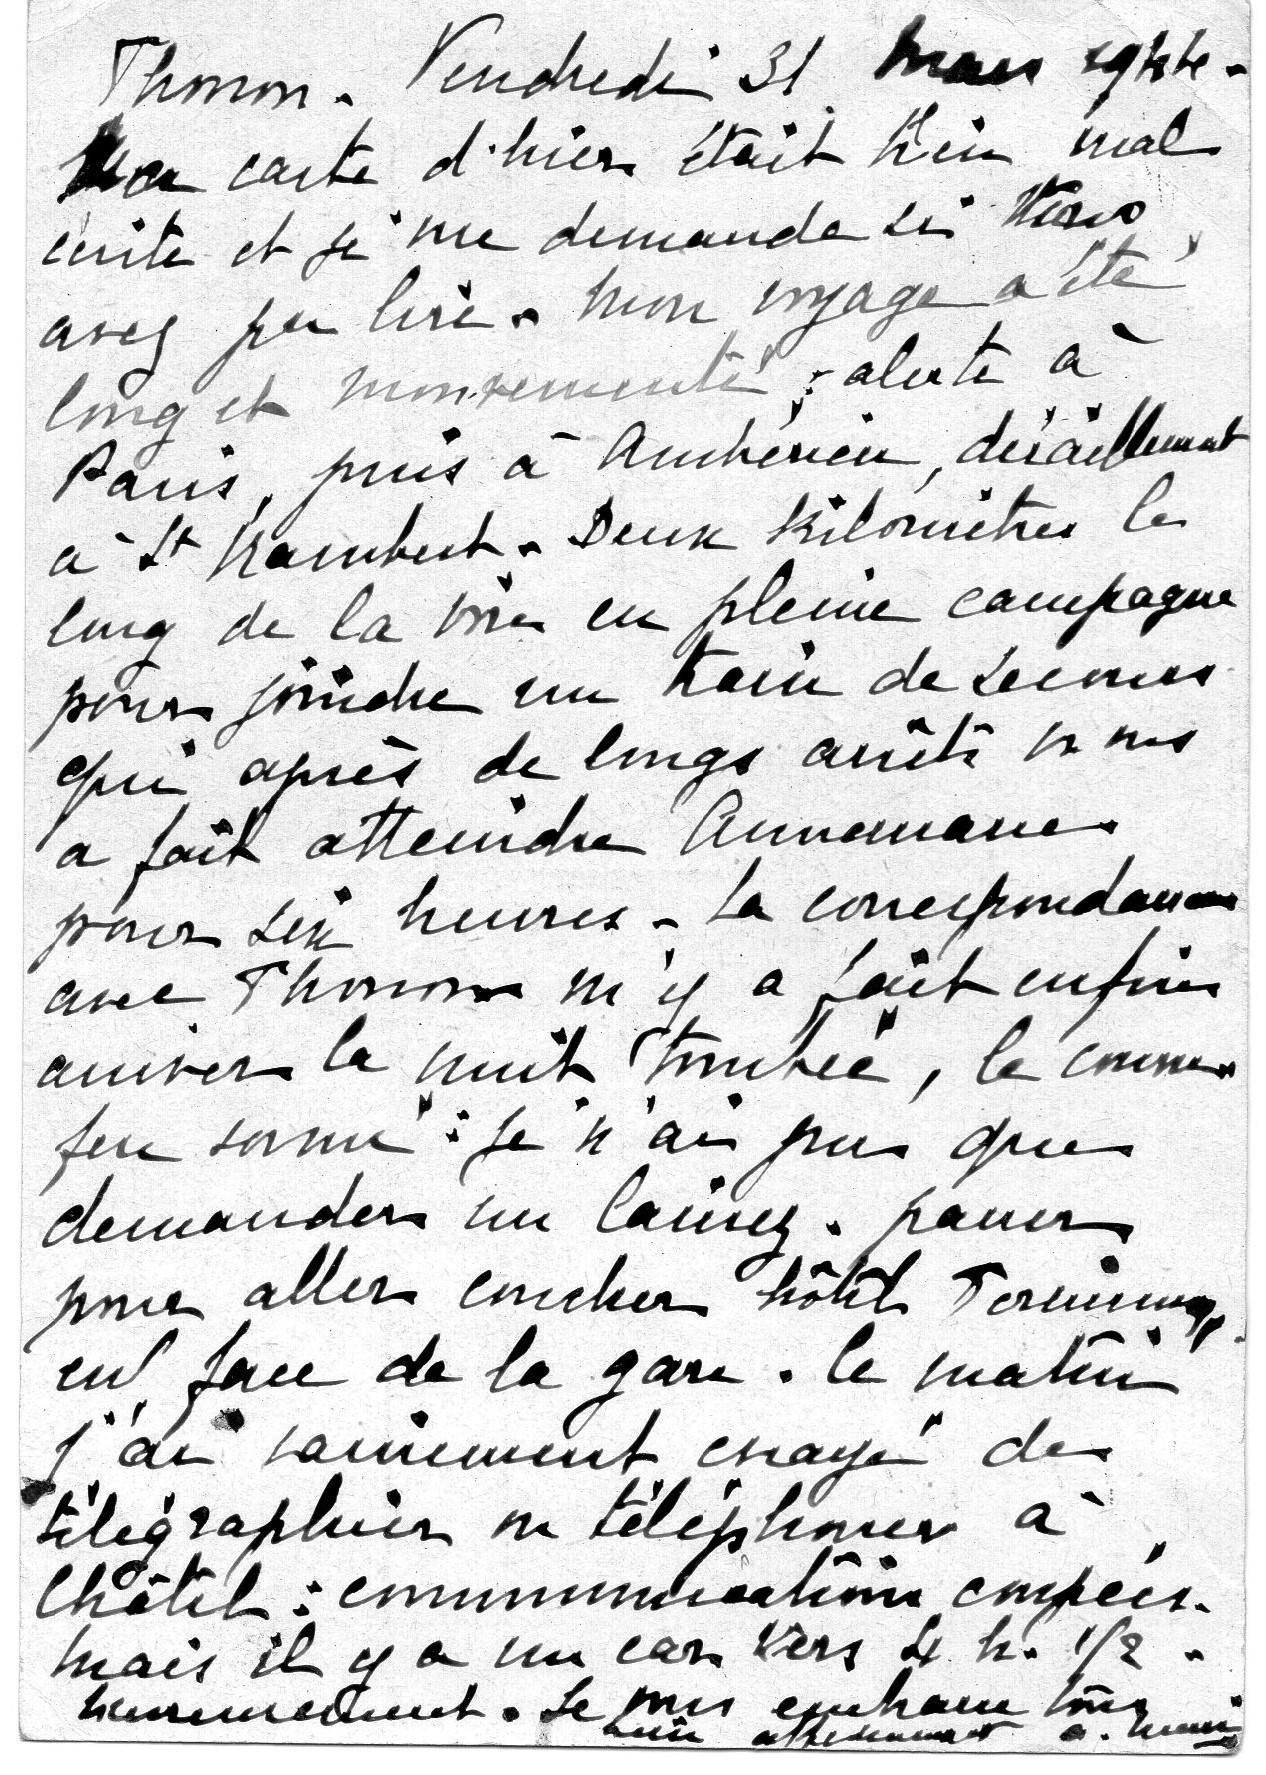 Thonon. Vendredi 31 mars
Ma carte d'hier était bien mal
écrite et je me demande si vous
avez pu lire. Mon voyage a été
long et mouvementé ; alerte à
Paris, puis à Ambérieu, déraillement
à St Rambert. Deux kilomètres le
long de la voie en pleine campagne
pour joindre un train de secours
qui après de longs arrêts nous
a fait atteindre Annemasse
pour six heures. La correspondance
avec Thonon m'y a fait enfin
arriver la nuit tombée, le couvre
feu sonné : je n'ai pu que
demander un laissez-passer
pour aller coucher hôtel Terminus,
en face de la gare. Le matin
j'ai vainement essayé de
télégraphier ou téléphoner à
Châtel : communications coupées.
Mais il y a un car vers 4 h. 1/2.
heureusement. Je vous embrasse tous
bien affectueusement a.